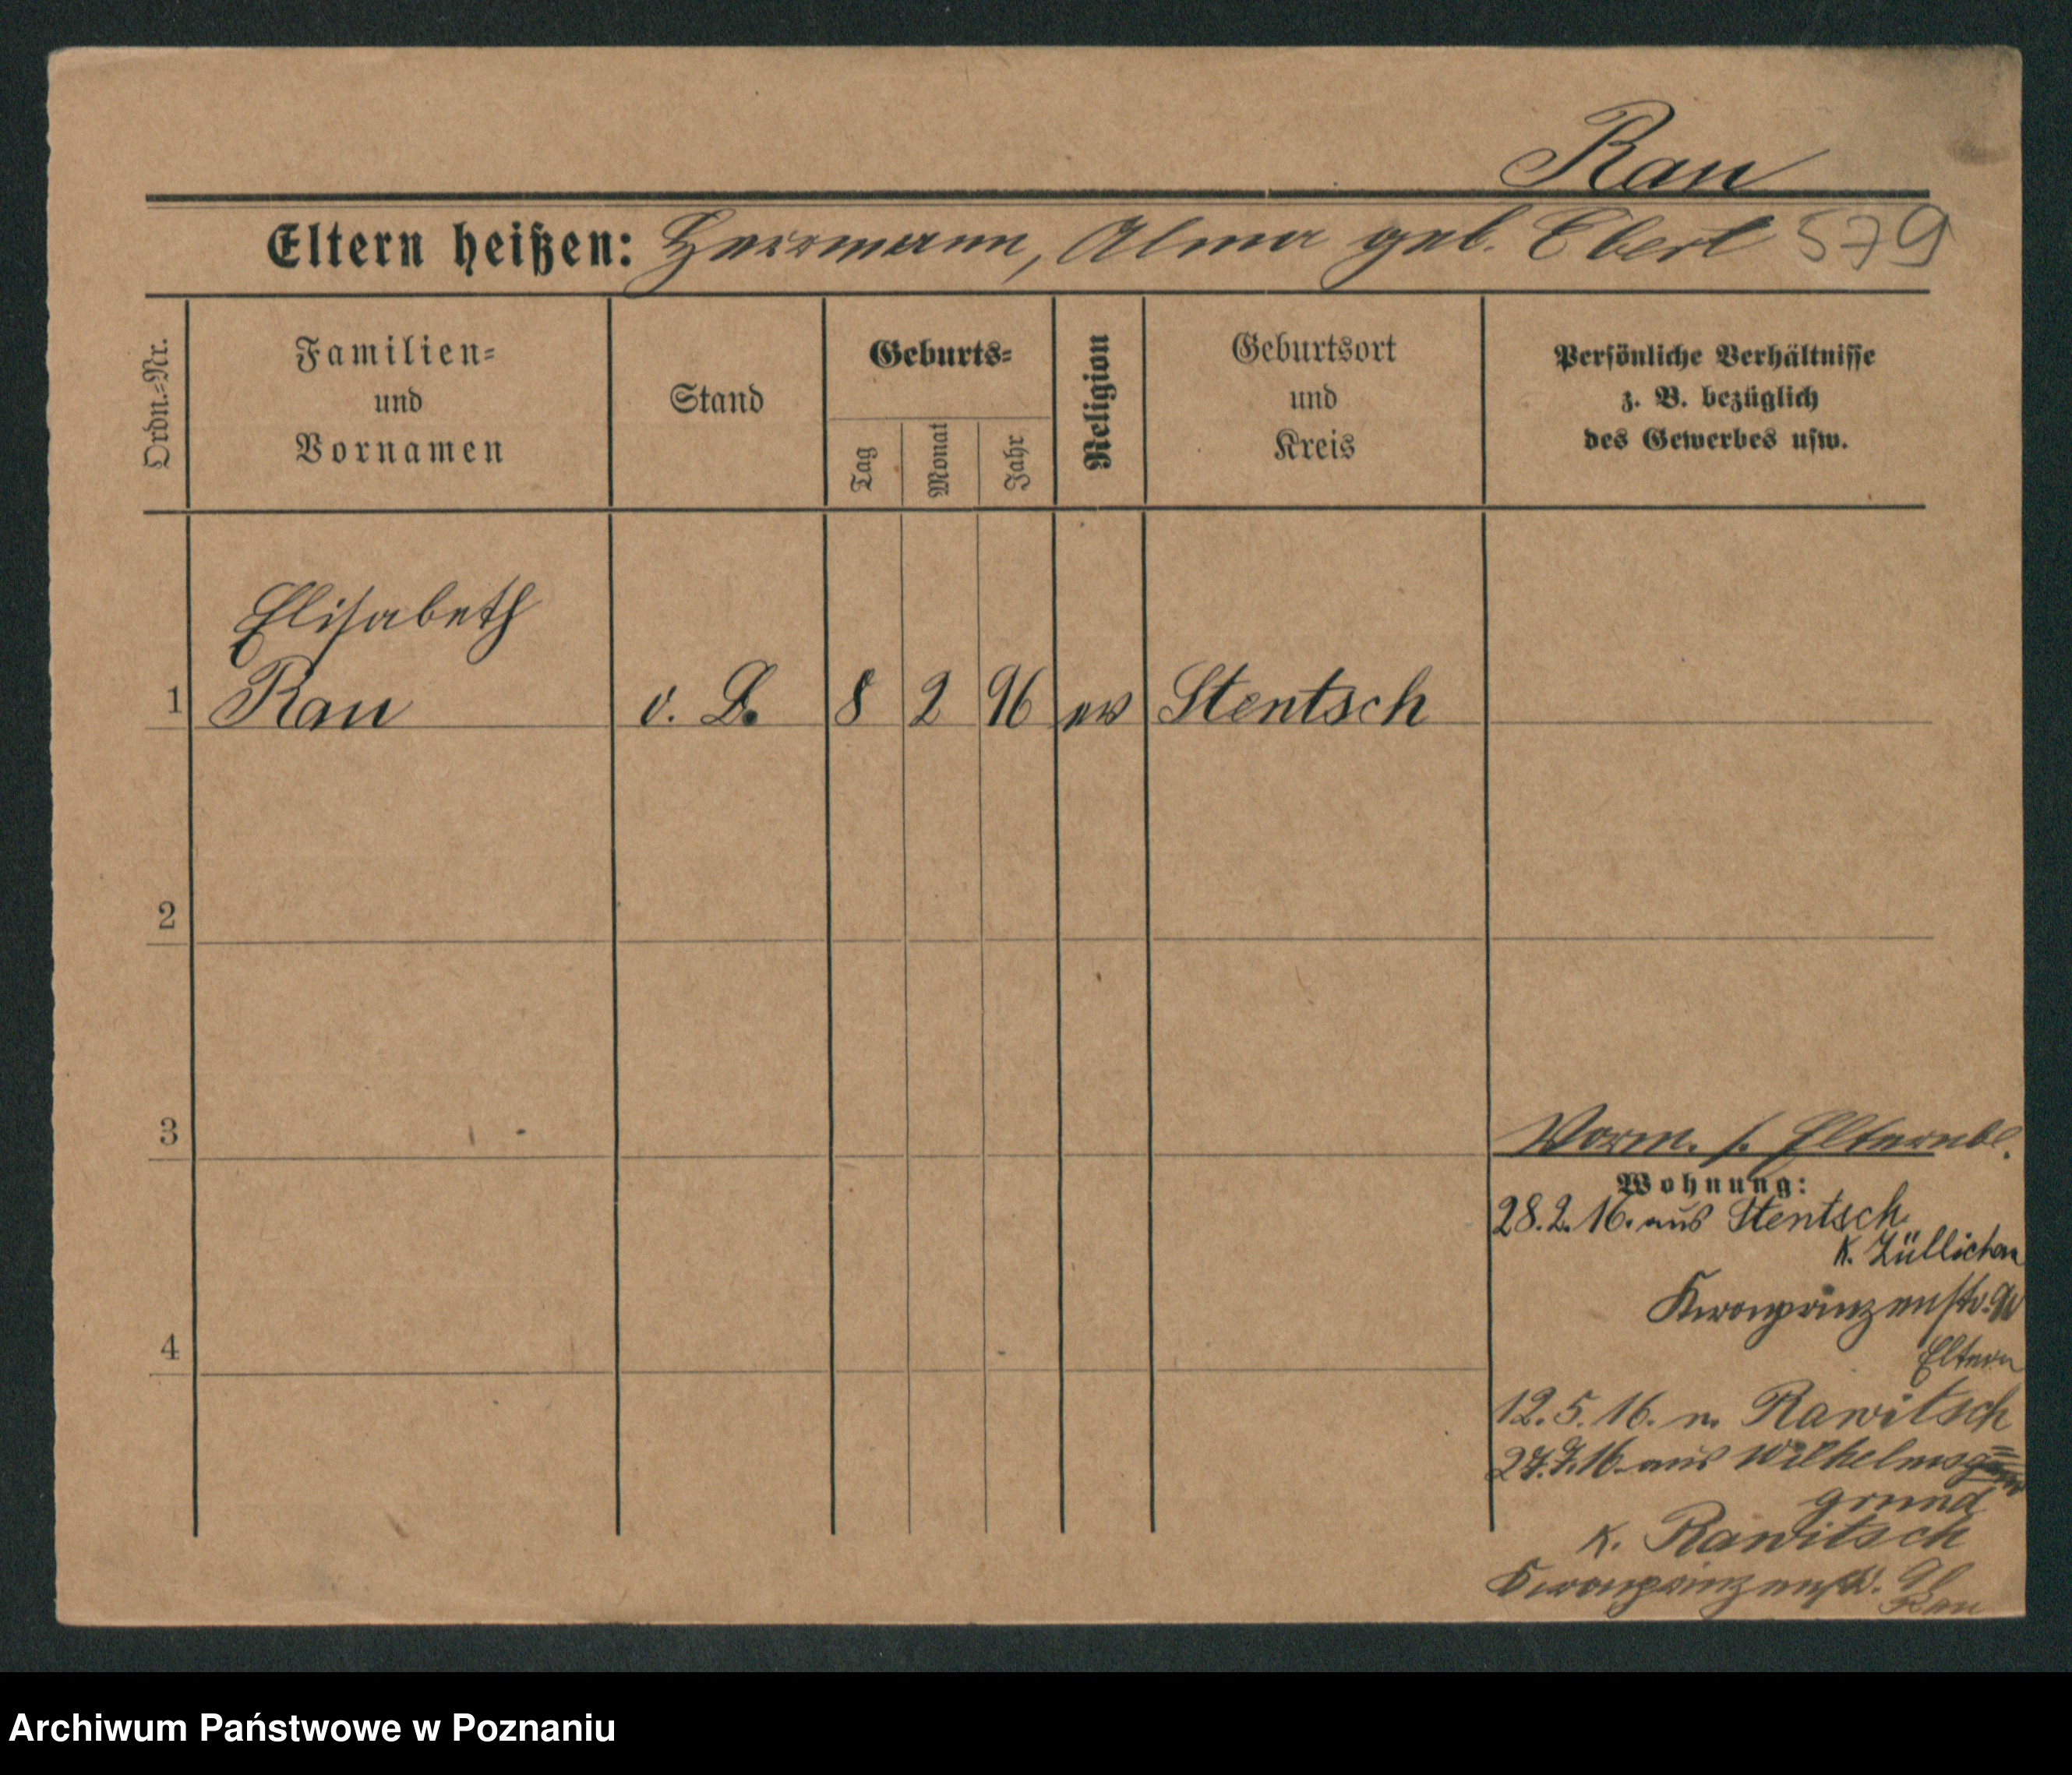 Rau
Eltern heißen: Herrmann, Alma geb. Ebert 579
Ordn.-Nr.
Familien-
und
Vornamen
Stand
Geburts-
Tag
Monat
Jahr
Religion
Geburtsort
und
Kreis
Persönliche Verhältnisse
z. B. bezüglich
des Gewerbes usw.
Elisabeth
1 Rau o. B. 8 2 96 ev Stentsch
2
3
Vorm. s. Elternbl.
Wohnung:
28.2.16. aus Stentsch
K. Züllichau
Kronprinzenstr.
Eltern
4
12.5.16. n. Rawitsch
27.7.16 aus Wilhelms=
grund
K. Rawitsch
Kronprinzenstr.
Rau
Archiwum Państwowe w Poznaniu